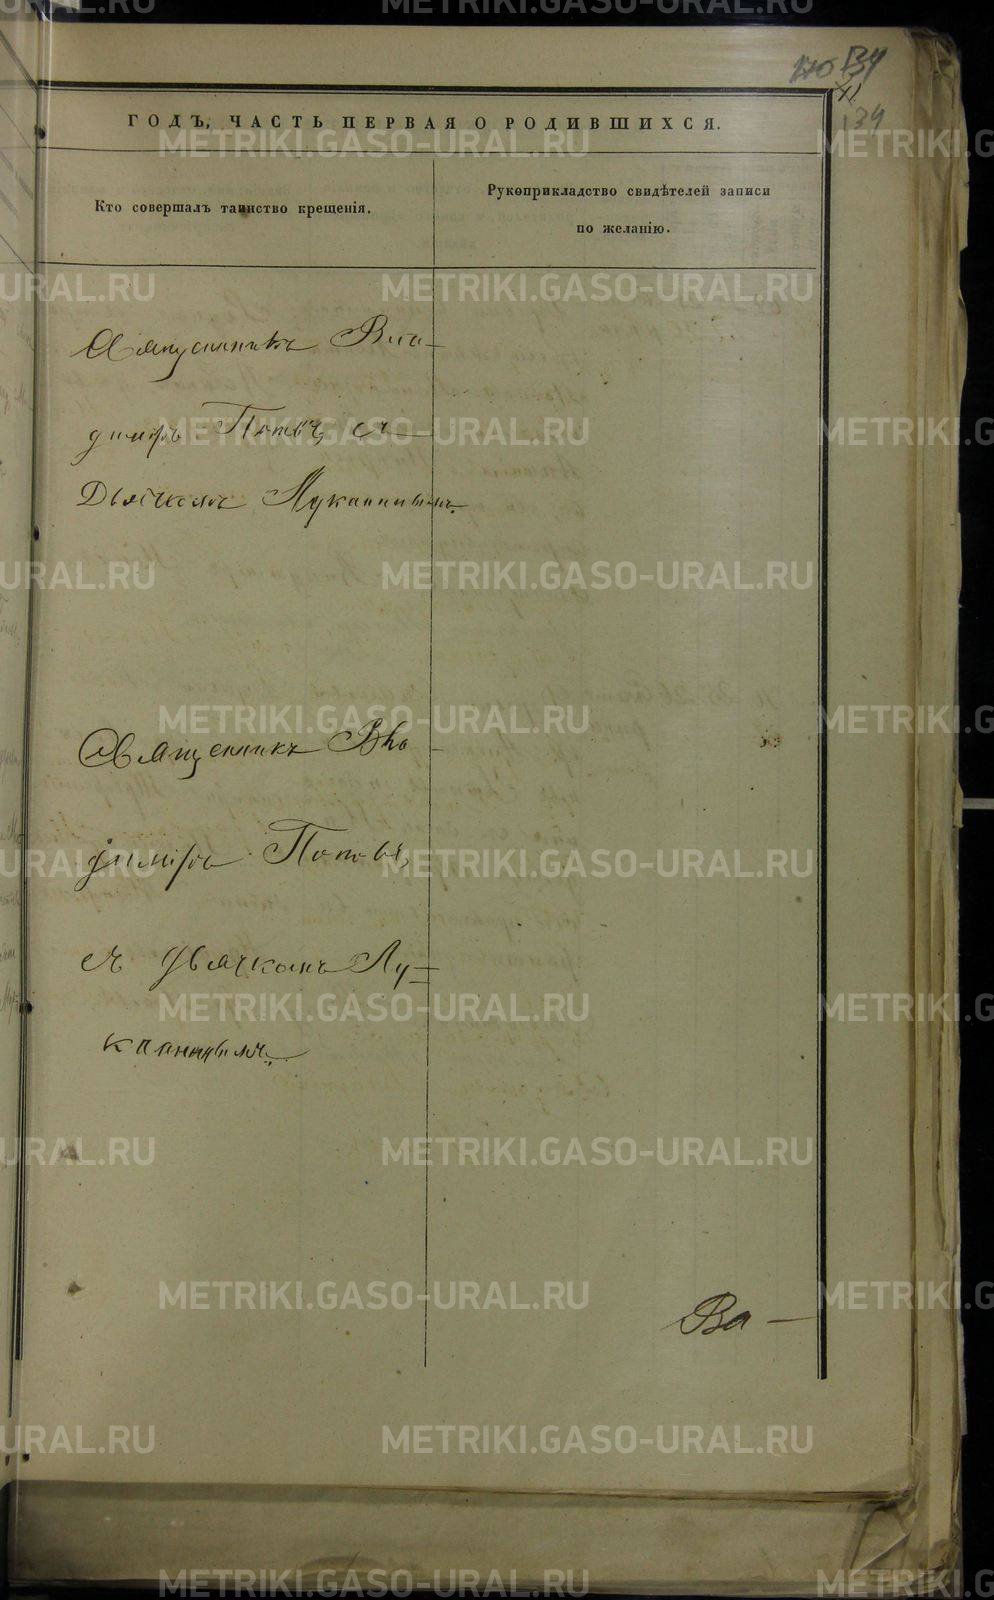 134
134
ГОДЪ, ЧАСТЬ ПЕРВАЯ О РОДИВШИХСЯ.
Кто совершалъ таинство крещенія.
Рукоприкладство свидѣтелей записи
по желанію.
Священникъ Вла-
димiръ Поповъ, съ
Дьячкомъ Лукановымъ.
Священникъ Вла-
димiръ Поповъ,
съ Дьячкомъ Лу-
кановымъ.
Ва-
METRIKI.GASO-URAL.RU